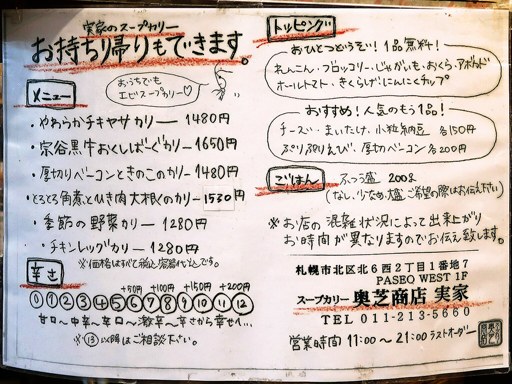 実家のスープカリー
お持ち帰りもできます。
おうちでも
エビスープカリー♡
メニュー
・やわらかチキヤサカリー ー 1480円
・宗谷黒牛おくしばーぐカリー 1650円
・厚切りベーコンときのこのカリー 1480円
・とろとろ角煮とひき肉大根のカリー 1530円
・季節の野菜カリー 1280円
・チキンレッグカリー ー 1280円
※価格はすべて税込容器代込です。
辛さ
+50円 +100円 +150円 +200円
0 1 2 3 4 5 6 7 8 9 10 11 12
甘口〜中辛〜辛口〜激辛〜辛さから幸せへ…
※ 13 以降はご相談下さい。
トッピング
おひとつどうぞ!1品無料!
れんこん・ブロッコリー・じゃがいも・おくら・アボカド
ホールトマト・きくらげ・にんにくチップ
おすすめ!人気のもう1品!
チーズ・まいたけ・小粒納豆 各150円
ぷりぷりえび・厚切ベーコン 各200円
ごはん
ふつう盛 200g
(なし、少なめ、大盛 ご希望の際はお伝え下さい)
※お店の混雑状況によって出来上がり
お時間が異なりますのでお伝え致します。
札幌市北区北6西2丁目1番地7
PASEO WEST 1F
スープカリー 奥芝商店 実家
TEL 011-213-5660
営業時間 11:00〜21:00 ラストオーダー